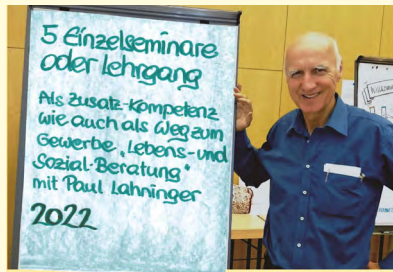 5 Einzelseminare
oder Lehrgang
Als Zusatz-Kompetenz
wie auch als Weg zum
Gewerbe „Lebens- und
Sozial-Beratung"
mit Paul Lahninger
2022